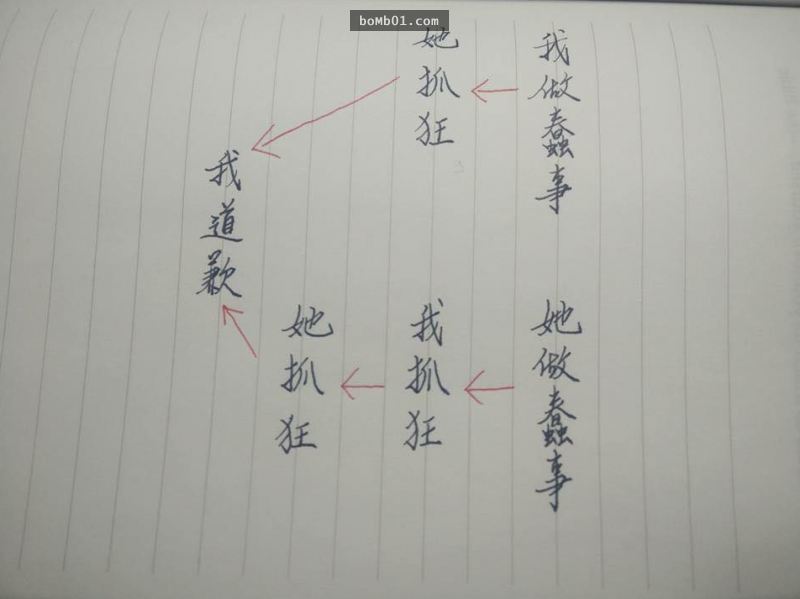 boMb01.com
我做蠢事
她抓狂
我道歉
她做蠢事
我抓狂
她抓狂